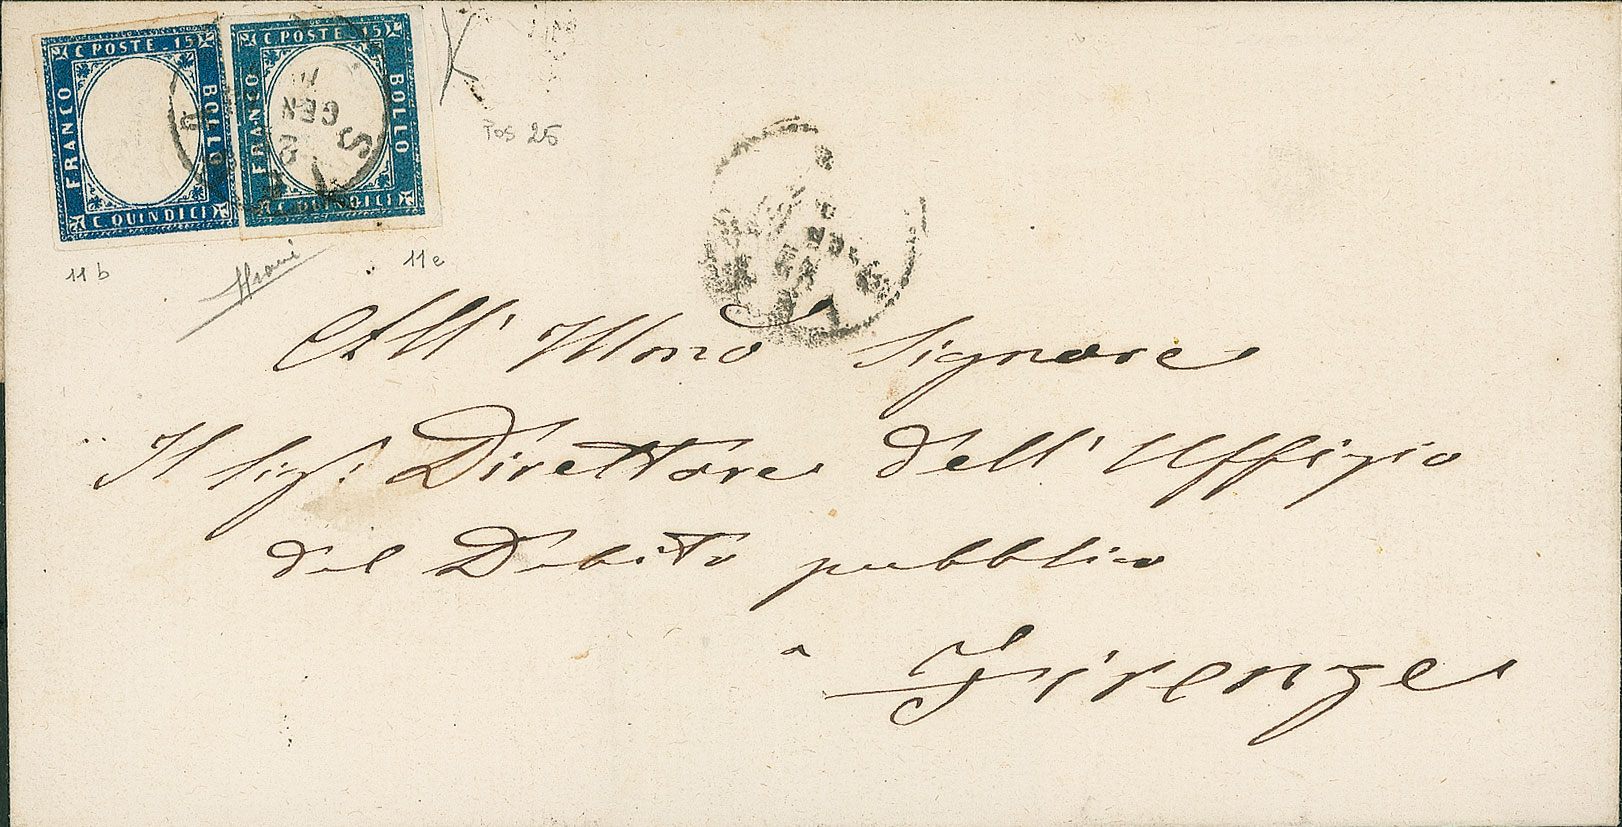 C POSTE 15
FRANCO
BOLLO
C. QUINDICI
C POSTE 15
FRANCO
BOLLO
C. QUINDICI
GEN
Pos 25
11 b
11 e
All' Illmo Signore
Il Sigr. Direttore dell' Uffizio
del Debito pubblico
a Firenze